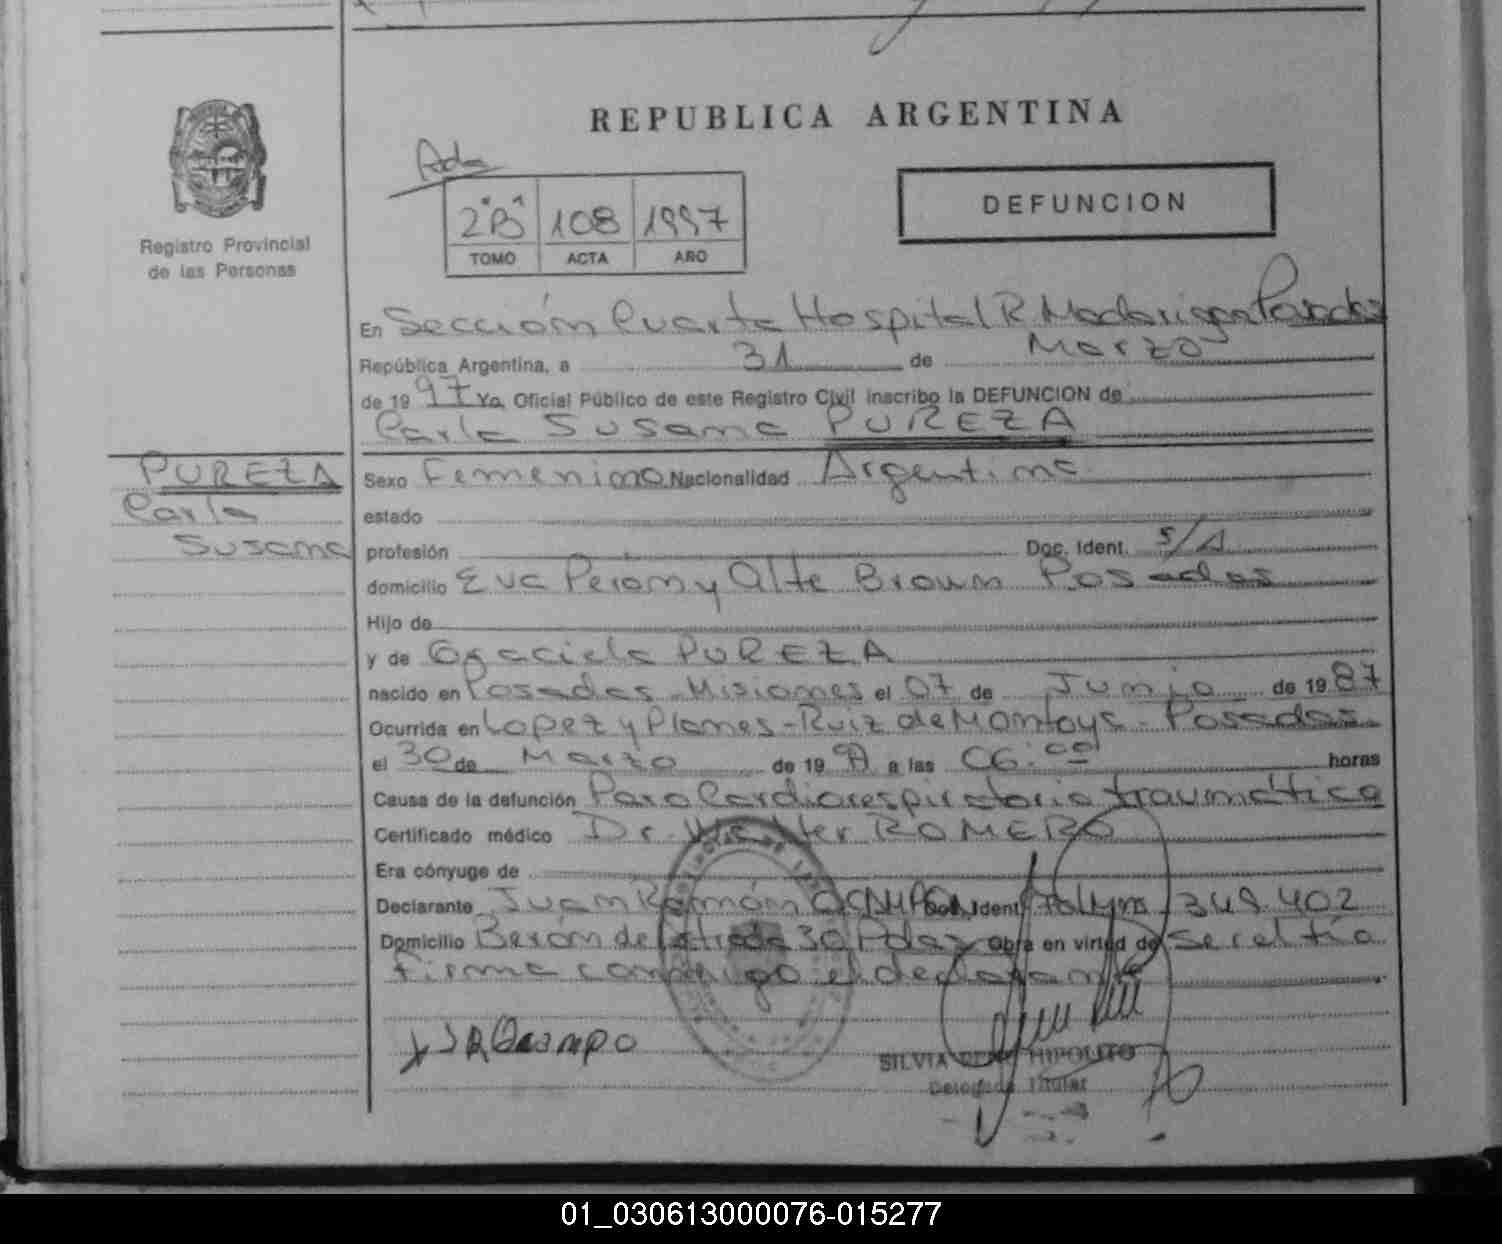 REPUBLICA ARGENTINA
Registro Provincial
de las Personas
Ada
2"B" 108 1997
TOMO ACTA AÑO
DEFUNCION
En Sección Cuarta Hospital R. Madariaga Posadas
República Argentina, a 31 de Marzo
de 1997 Yo Oficial Público de este Registro Civil inscribo la DEFUNCION de
Carla Susana PUREZA
PUREZA
Carla
Susana
Sexo Femenino Nacionalidad Argentina
estado
profesión Doc. Ident.
domicilio Eva Perón y Alte Brown Posadas
Hijo de
y de Graciela PUREZA
nacido en Posadas Misiones el 07 de Junio de 1987
Ocurrida en Lopez y Planes - Ruiz de Montoya - Posadas
el 30 de Marzo de 1997 a las 06:00 horas
Causa de la defunción Paro Cardiorespiratorio traumática
Certificado médico Dr. Walter ROMERO
Era cónyuge de
Declarante Juan Ramón OCAMPO Doc. Ident.
Domicilio Berón de Estrada 30 Pdas Obra en virtud de ser el tío
firma conmigo el declarante
J R Ocampo
SILVIA HIPOLITO
Delegada Titular
01_030613000076-015277